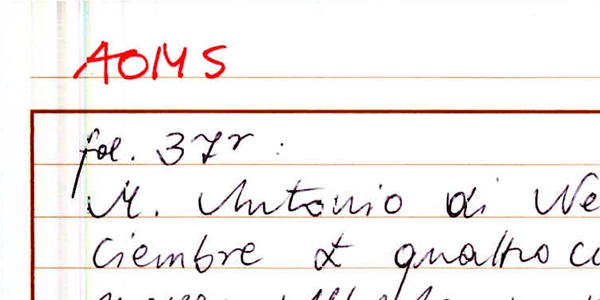 AOMS
fol. 37r :
M. Antonio di Ne
ciembre & quattro c